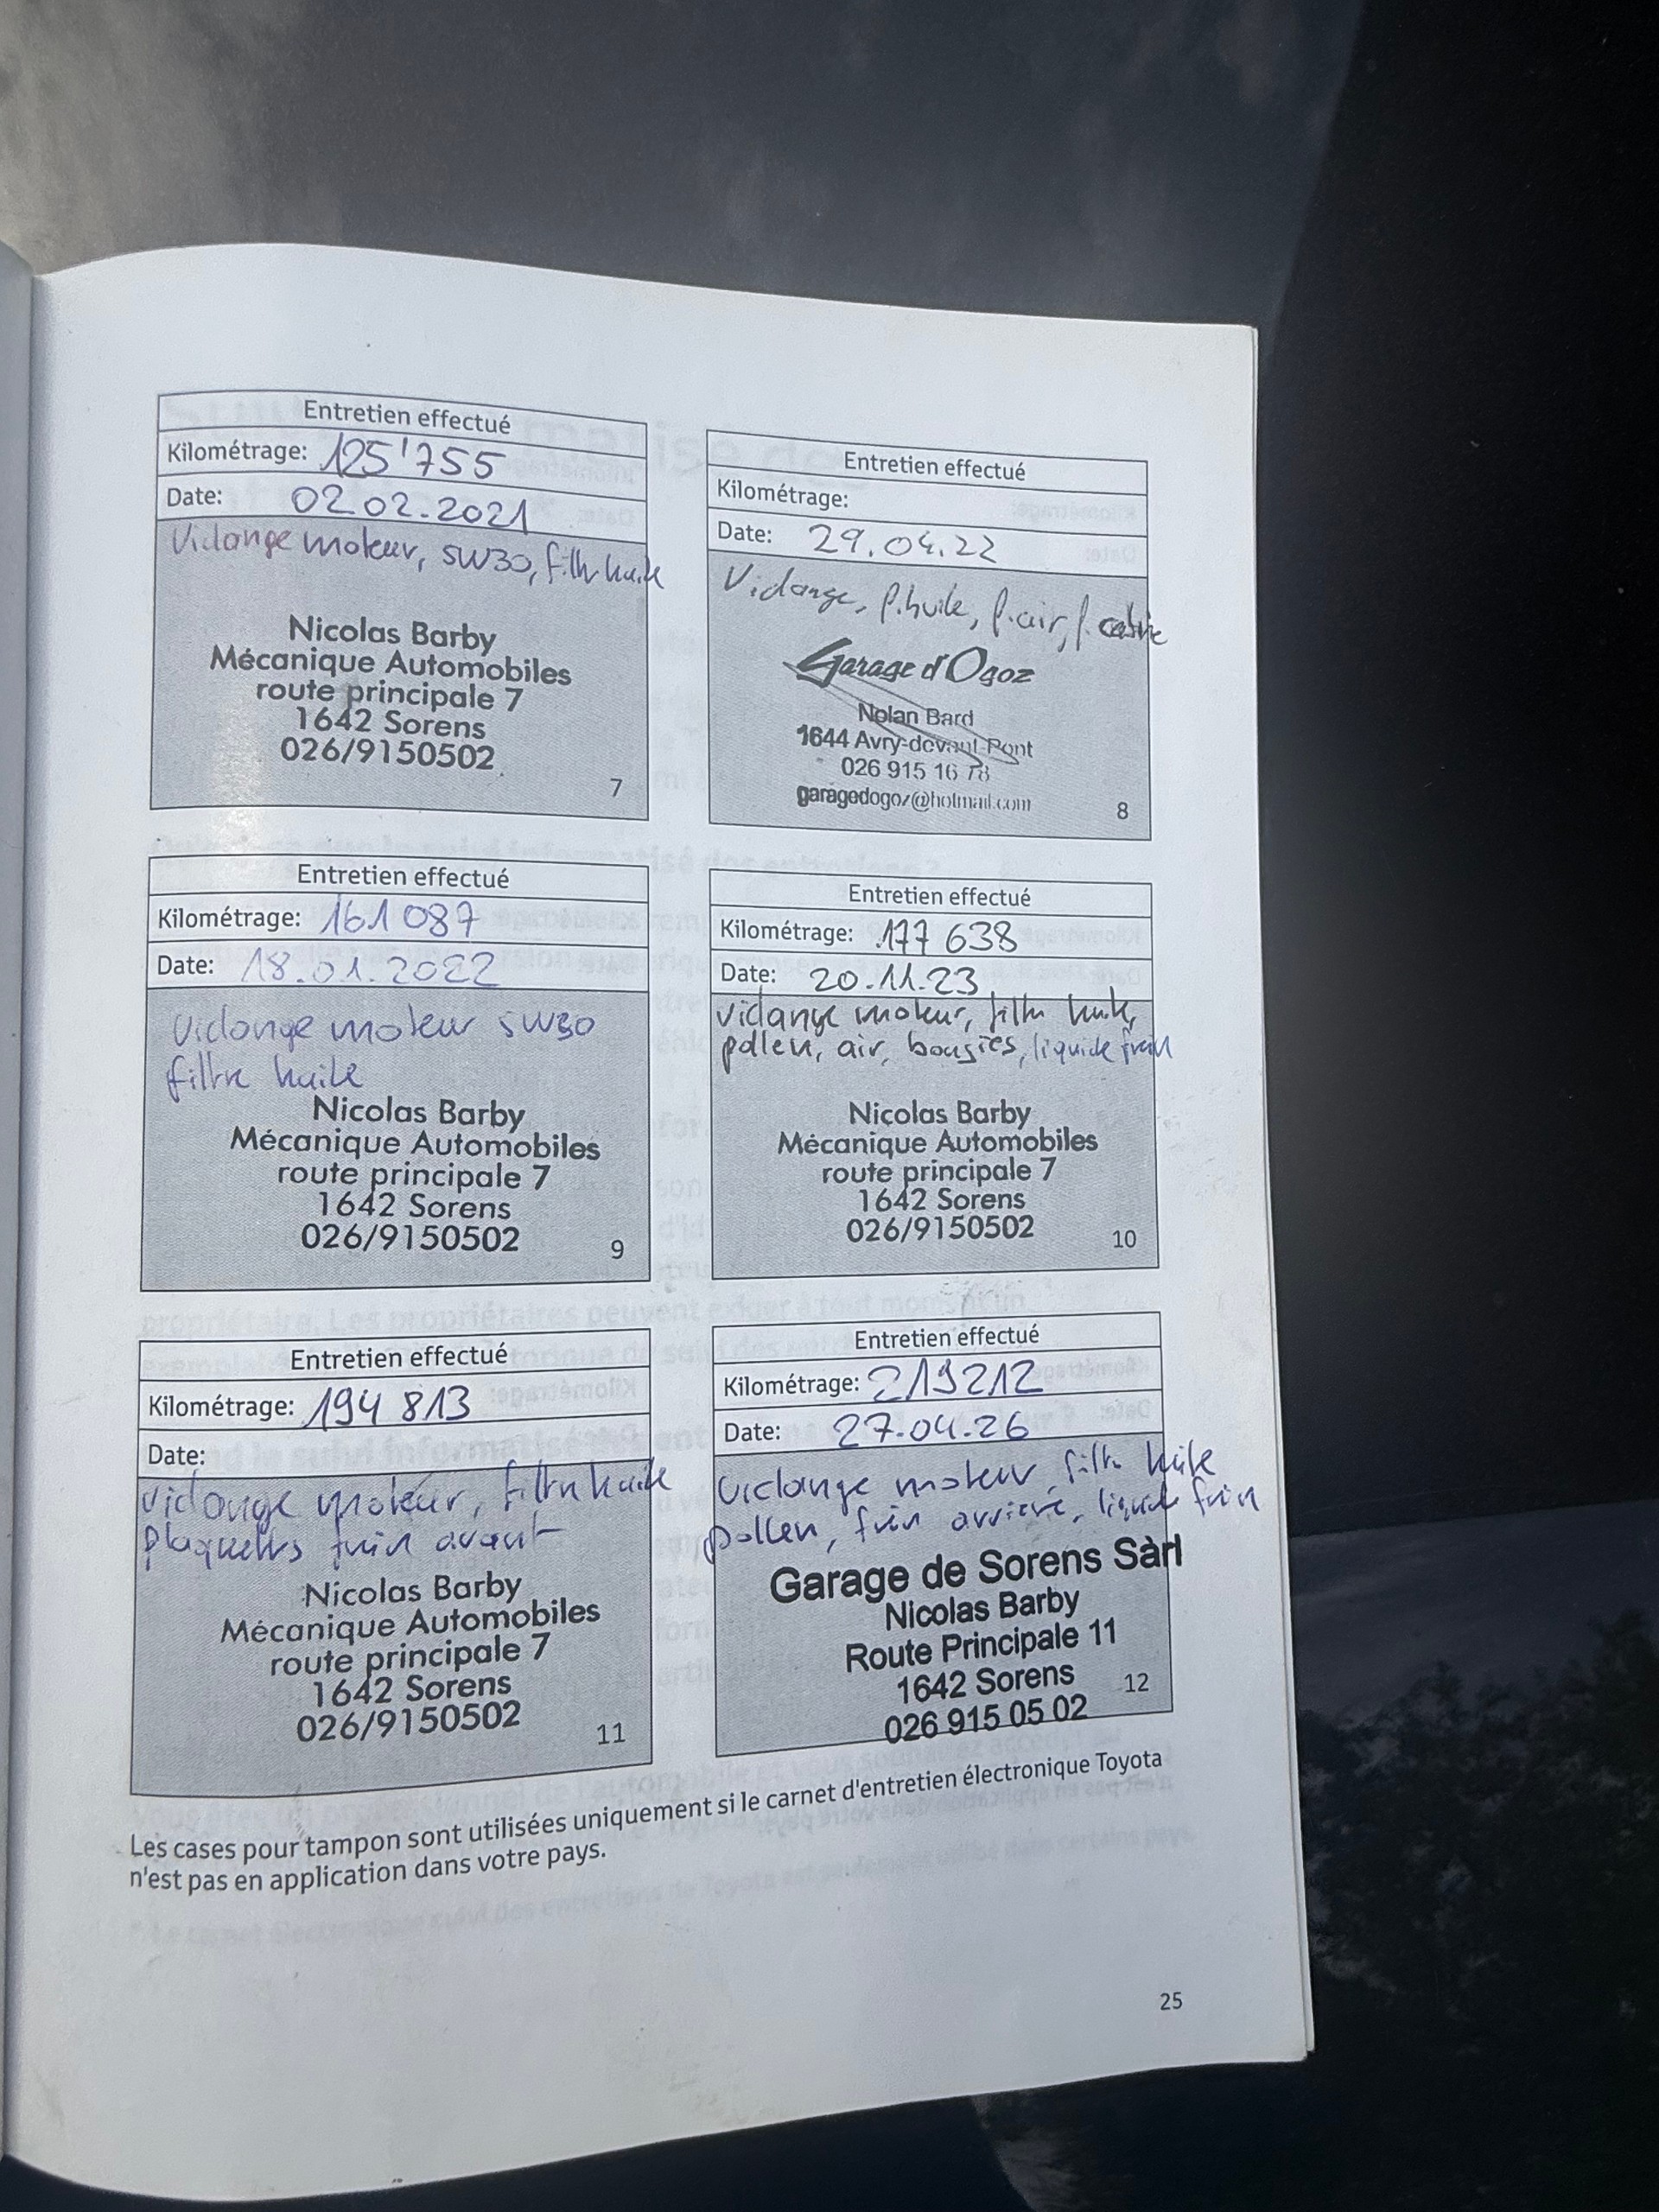 Entretien effectué
Kilométrage: 125'755
Date: 02.02.2021
Vidange moteur, 5W30, filtr huile
Nicolas Barby
Mécanique Automobiles
route principale 7
1642 Sorens
026/9150502
7
Entretien effectué
Kilométrage:
Date: 29.04.22
Vidange, f.huile, f.air, f.
Garage d'Ogoz
Nolan Bard
1644 Avry-devant-Pont
026 915 16 78
garagedogoz@hotmail.com
8
Entretien effectué
Kilométrage: 161 087
Date: 18.01.2022
Vidange moteur 5W30
filtre huile
Nicolas Barby
Mécanique Automobiles
route principale 7
1642 Sorens
026/9150502
9
Entretien effectué
Kilométrage: 177 638
Date: 20.11.23
vidange moteur, filtre huile,
pollen, air, bougies, liquide frein
Nicolas Barby
Mécanique Automobiles
route principale 7
1642 Sorens
026/9150502
10
Entretien effectué
Kilométrage: 194 813
Date:
vidange moteur, filtre huile
plaquettes frein avant
Nicolas Barby
Mécanique Automobiles
route principale 7
1642 Sorens
026/9150502
11
Entretien effectué
Kilométrage: 219212
Date: 27.04.26
Vidange moteur, filtre huile
pollen, frein arrière, liquide frein
Garage de Sorens Sàrl
Nicolas Barby
Route Principale 11
1642 Sorens
026 915 05 02
12
Les cases pour tampon sont utilisées uniquement si le carnet d'entretien électronique Toyota
n'est pas en application dans votre pays.
25